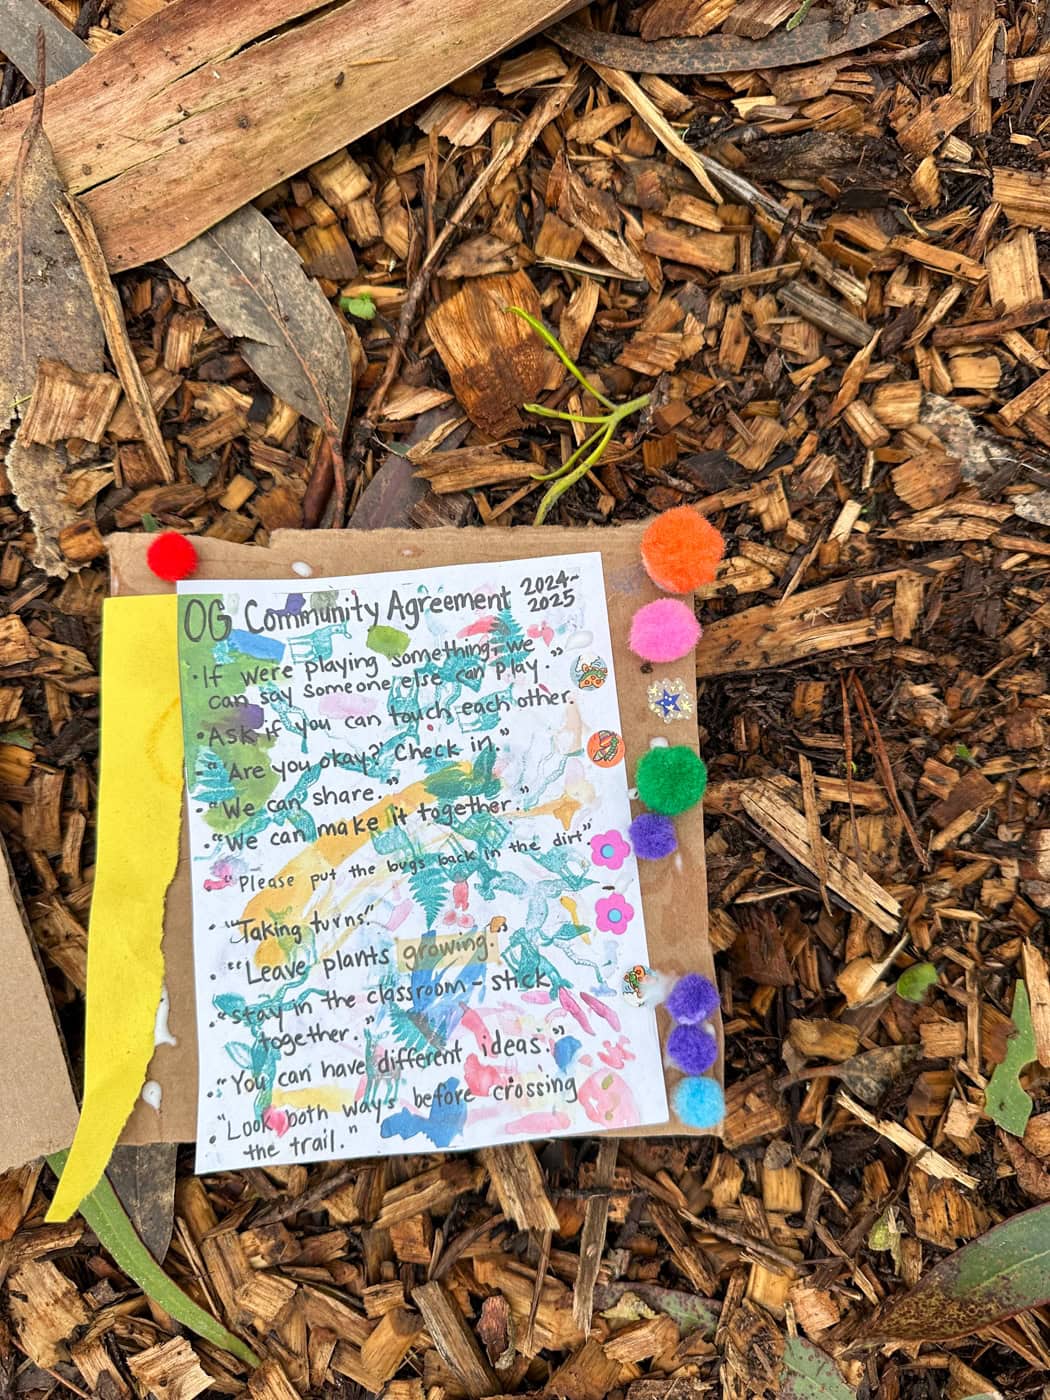 OG Community Agreement 2024-
2025
· If were playing something, we
can say someone else can play."
• Ask if you can touch each other.
- "Are you okay? Check in."
• "We can share."
• "We can make it together."
• "Please put the bugs back in the dirt"
• "Taking turns."
• "Leave plants growing."
• "Stay in the classroom - stick
together."
• "You can have different ideas."
• "Look both ways before crossing
the trail."